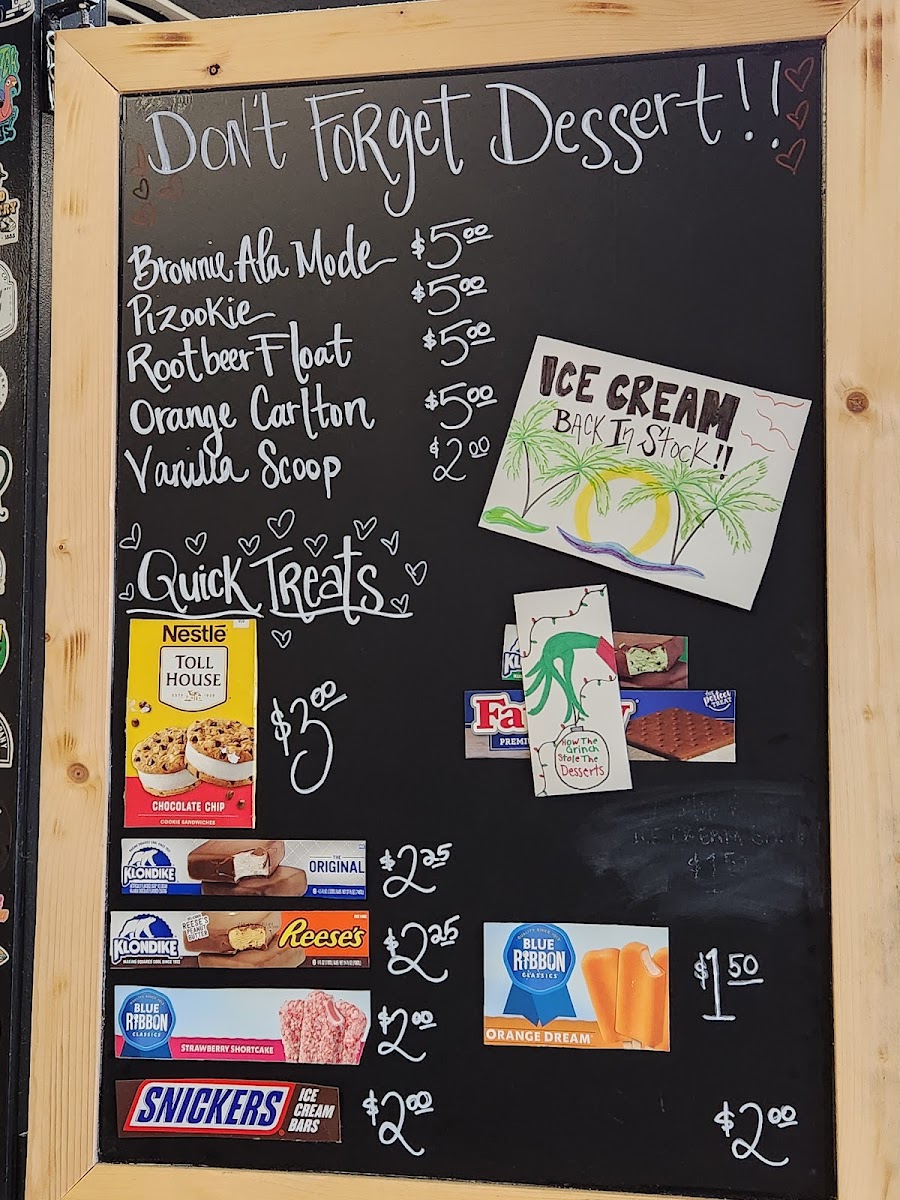 Don't Forget Dessert!!
Brownie Ala Mode $5.00
Pizookie $5.00
Rootbeer Float $5.00
Orange Carlton $5.00
Vanilla Scoop $2.00
ICE CREAM
BACK In Stock!!
Quick Treats
Nestlé
TOLL
HOUSE
CHOCOLATE CHIP
COOKIE SANDWICHES
$3.00
the perfect
TREAT
Fa
PREMI
How The
Grinch
Stole The
Desserts
KLONDIKE
THE
ORIGINAL
$2.25
KLONDIKE
REESE'S
PEANUT
BUTTER
Reese's
$2.25
BLUE
RIBBON
CLASSICS
STRAWBERRY SHORTCAKE
$2.00
BLUE
RIBBON
CLASSICS
ORANGE DREAM
$1.50
SNICKERS
ICE
CREAM
BARS
$2.00
$2.00